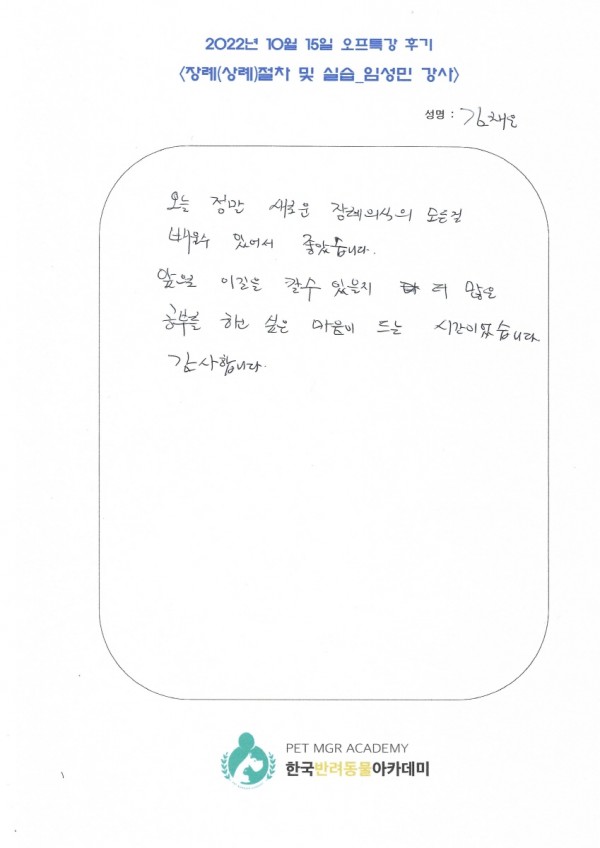 2022년 10월 15일 오프특강 후기
<장례(상례)절차 및 실습_임성민 강사>
성명 : 김채은
오늘 정말 새로운 장례의식의 모든걸
배울수 있어서 좋았습니다.
앞으로 이길을 갈수 있을지 더 많은
공부를 하고 싶은 마음이 드는 시간이였습니다
감사합니다.
PET MGR ACADEMY
한국반려동물아카데미